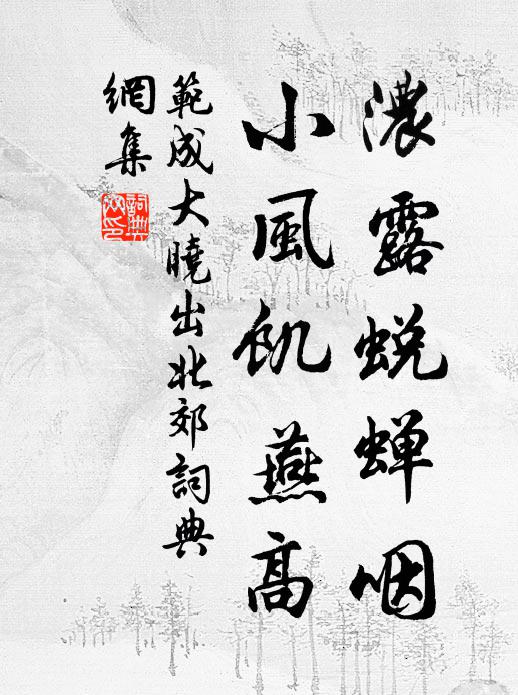 濃露蛻蟬咽
小風飢燕高
範成大曉出北郊詞典
網集
詞典
网印